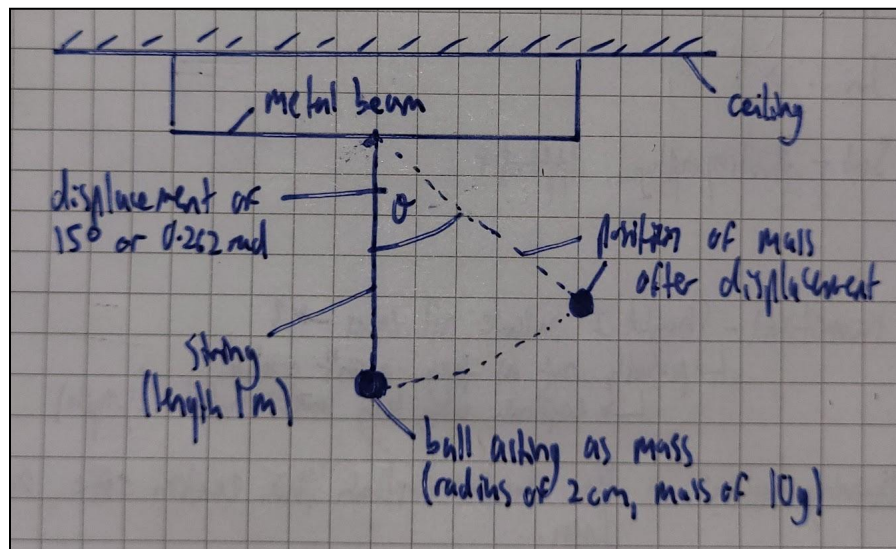 metal beam
ceiling
displacement of
15° or 0.262 rad
θ
position of mass
after displacement
string
(length 1m)
ball acting as mass
(radius of 2cm, mass of 10g)